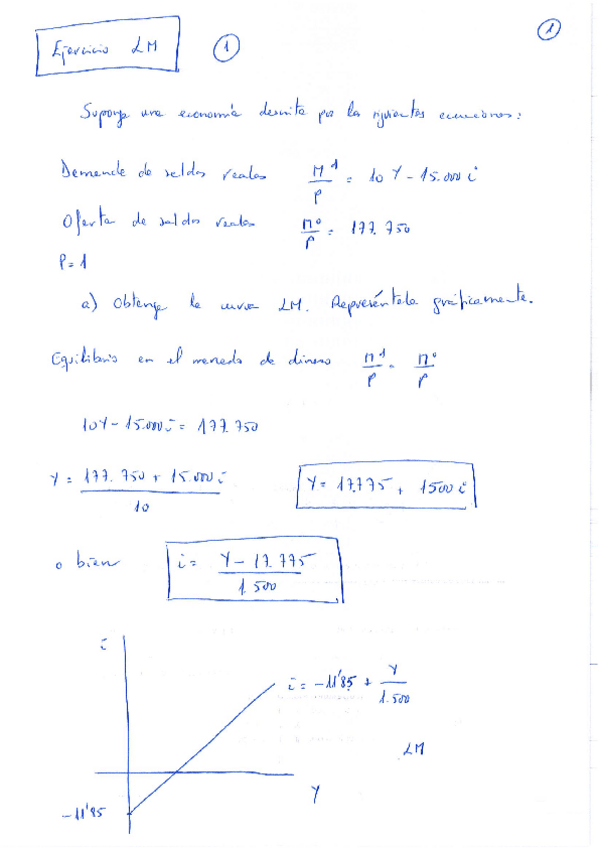 1
Ejercicio LM 1
Suponga una economía descrita por las siguientes ecuaciones:
Demanda de saldos reales M^d/P = 10 Y - 15.000 i
Oferta de saldos reales M^o/P = 177.750
P = 1
a) Obtenga la curva LM. Represéntela gráficamente.
Equilibrio en el mercado de dinero M^d/P = M^o/P
10Y - 15.000 i = 177.750
Y = 177.750 + 15.000 i / 10 Y = 17.775 + 1500 i
o bien i = Y - 17.775 / 1.500
i
i = -11'85 + Y/1.500
LM
Y
-11'85